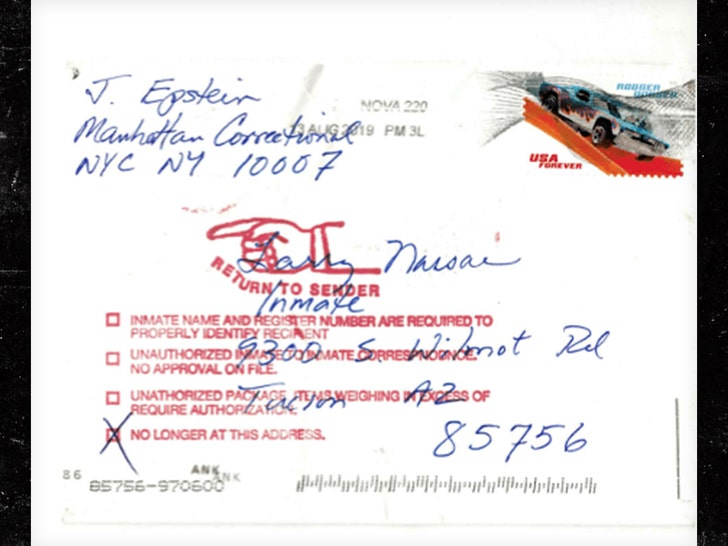 J. Epstein
Manhattan Correctional
NYC NY 10007
NOVA 220
13 AUG 2019 PM 3L
RODGER DODGER
USA
FOREVER
RETURN TO SENDER
Larry Nassar
Inmate
9300 S. Wilmot Rd
Tucson AZ
85756
INMATE NAME AND REGISTER NUMBER ARE REQUIRED TO
PROPERLY IDENTIFY RECIPIENT
UNAUTHORIZED INMATE TO INMATE CORRESPONDENCE.
NO APPROVAL ON FILE.
UNATHORIZED PACKAGE, ITEMS WEIGHING IN EXCESS OF
REQUIRE AUTHORIZATION.
NO LONGER AT THIS ADDRESS.
86
ANK
ANK
85756-970600